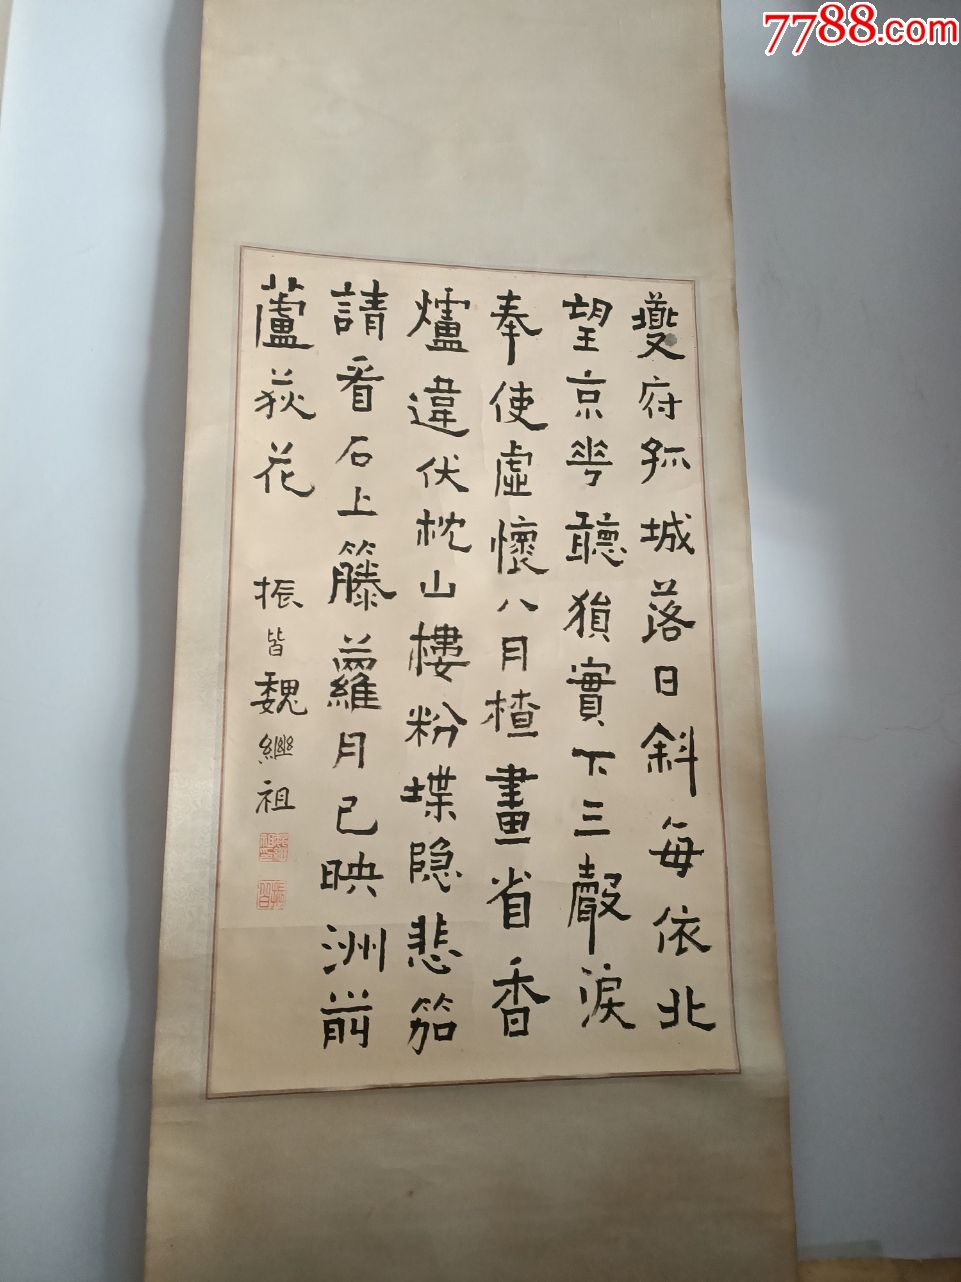 7788.com
夔府孤城落日斜每依北
望京華聽猿實下三聲淚
奉使虛懷八月楂畫省香
爐違伏枕山樓粉堞隐悲笳
請看石上籐蘿月已映洲前
蘆荻花
振皆魏繼祖